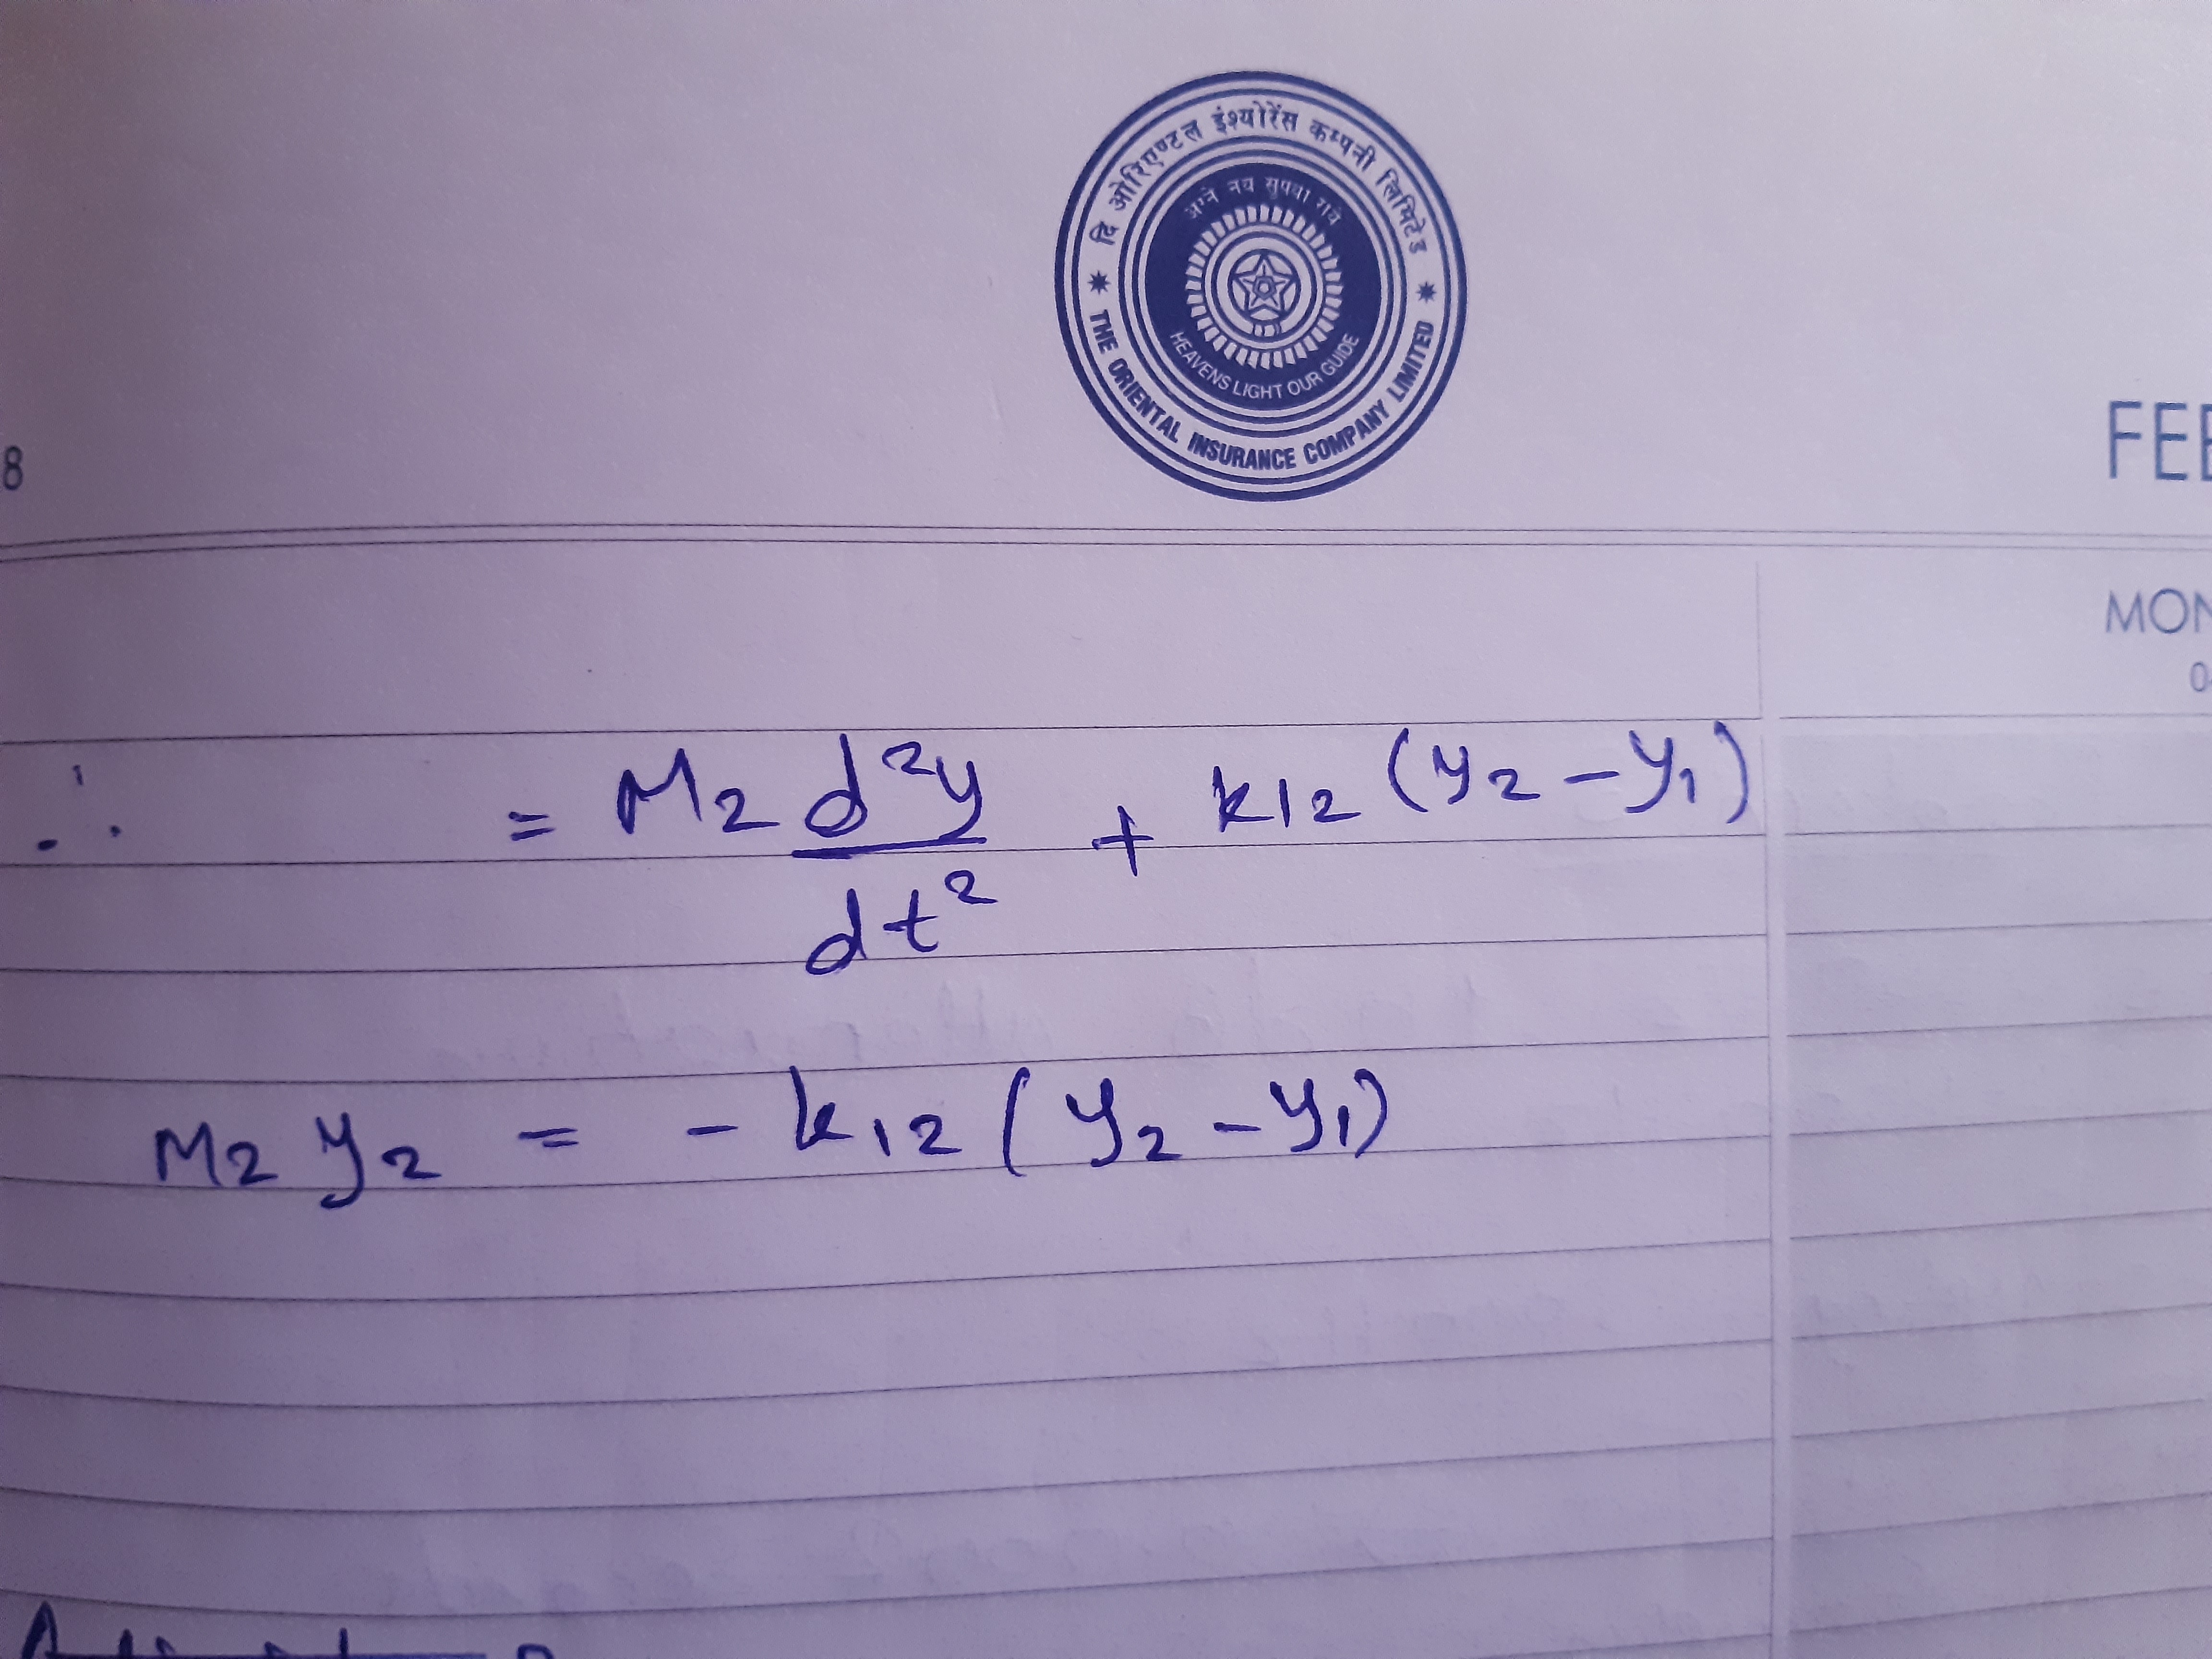 दि ओरिएण्टल इंश्योरेंस कम्पनी लिमिटेड
अग्ने नय सुपथा राये
HEAVENS LIGHT OUR GUIDE
THE ORIENTAL INSURANCE COMPANY LIMITED
8
FEB
MON
∴ = M2 d²y/dt² + k12 (y2 - y1)
M2 y2 = - k12 (y2 - y1)